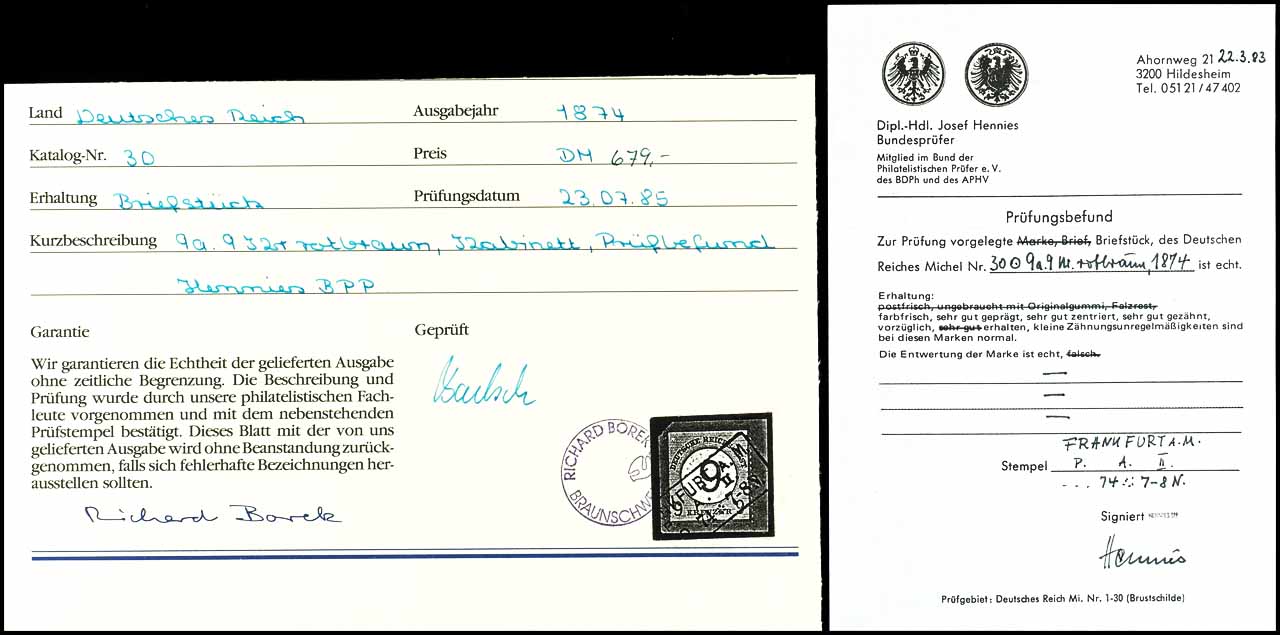 Land Deutsches Reich Ausgabejahr 1874
Katalog-Nr. 30 Preis DM 679,-
Erhaltung Briefstück Prüfungsdatum 23.07.85
Kurzbeschreibung 9a. 9 Kr rotbraun, Kabinett, Prüfbefund
Hennies BPP
Garantie Geprüft
Wir garantieren die Echtheit der gelieferten Ausgabe
ohne zeitliche Begrenzung. Die Beschreibung und
Prüfung wurde durch unsere philatelistischen Fach-
leute vorgenommen und mit dem nebenstehenden
Prüfstempel bestätigt. Dieses Blatt mit der von uns
gelieferten Ausgabe wird ohne Beanstandung zurück-
genommen, falls sich fehlerhafte Bezeichnungen her-
ausstellen sollten.
Richard Borek
RICHARD BOREK
BRAUNSCHWE
DEUTSCHE REICHS POST
9
9
KREUZER
FURT A.
II
74 7-8N
22.3.83
Ahornweg 21
3200 Hildesheim
Tel. 05121/47402
Dipl.-Hdl. Josef Hennies
Bundesprüfer
Mitglied im Bund der
Philatelistischen Prüfer e. V.
des BDPh und des APHV
Prüfungsbefund
Zur Prüfung vorgelegte Marke, Brief, Briefstück, des Deutschen
Reiches Michel Nr. 30 ⊙ 9a.9 Kr. rotbraun, 1874 ist echt.
Erhaltung:
postfrisch, ungebraucht mit Originalgummi, Falzrest,
farbfrisch, sehr gut geprägt, sehr gut zentriert, sehr gut gezähnt,
vorzüglich, sehr gut erhalten, kleine Zähnungsunregelmäßigkeiten sind
bei diesen Marken normal.
Die Entwertung der Marke ist echt, falsch.
FRANKFURT A. M.
Stempel P. A. II.
- .. 74 :: 7-8 N.
Signiert HENNIES BPP
Hennies
Prüfgebiet: Deutsches Reich Mi. Nr. 1-30 (Brustschilde)